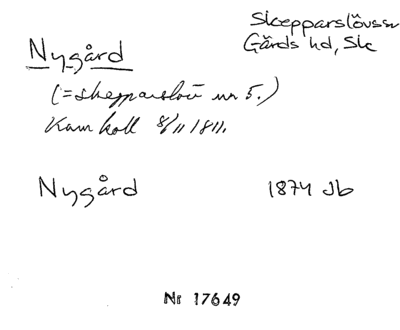 Skepparslövs sn
Gärds hd, Sk
Nygård
(= skepparslöv nr 5.)
Kam koll 8/11 1811.
Nygård 1874 Jb
Nr 17649